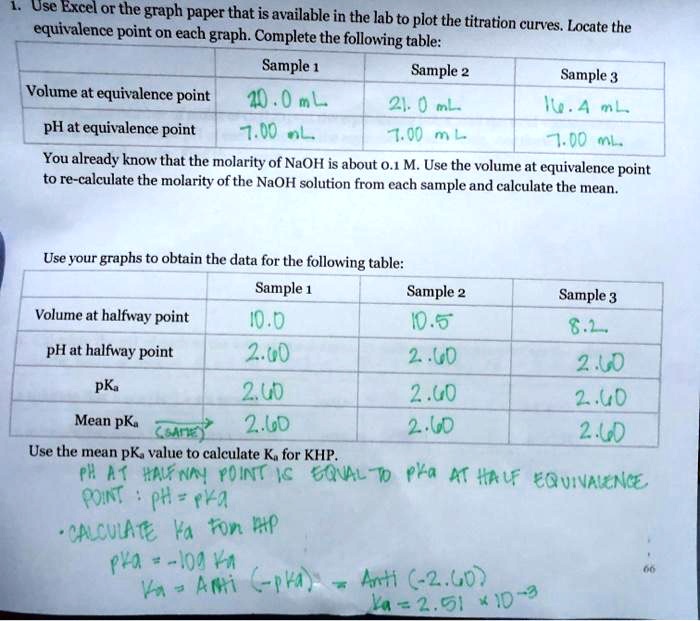 1. Use Excel or the graph paper that is available in the lab to plot the titration curves. Locate the
equivalence point on each graph. Complete the following table:
Sample 1 Sample 2 Sample 3
Volume at equivalence point 20.0 mL 21.0 mL 16.4 mL
pH at equivalence point 7.00 mL 7.00 mL 7.00 mL
You already know that the molarity of NaOH is about 0.1 M. Use the volume at equivalence point
to re-calculate the molarity of the NaOH solution from each sample and calculate the mean.
Use your graphs to obtain the data for the following table:
Sample 1 Sample 2 Sample 3
Volume at halfway point 10.0 10.5 8.2
pH at halfway point 2.60 2.60 2.60
pKa 2.60 2.60 2.60
Mean pKa (SAME) 2.60 2.60 2.60
Use the mean pKa value to calculate Ka for KHP.
PH AT HALFWAY POINT IS EQUAL TO pKa AT HALF EQUIVALENCE
POINT : pH = pKa
• CALCULATE Ka FOR KHP
pKa = -log Ka
Ka = Anti (-pKa) = Anti (-2.60)
Ka = 2.51 × 10-3
66